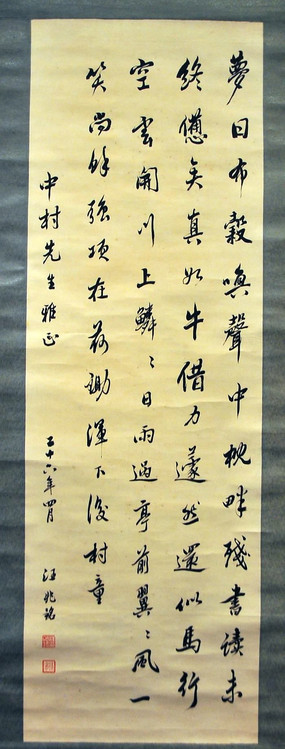 夢回布穀喚聲中枕畔殘書讀未
終憊矣真如牛借力蘧然還似馬行
空雲開川上鱗〻日雨過亭前翼〻風一
笑尚餘強項在荷鋤渾不後村童
中村先生雅正
二十六年四月 汪兆銘